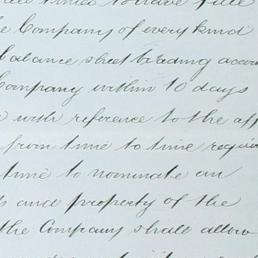 times to have full
e Company of every kind
balance sheet trading accou
Company within 10 days
with reference to the aff
from time to time requir
time to nominate an
s and property of the
the Company shall allow